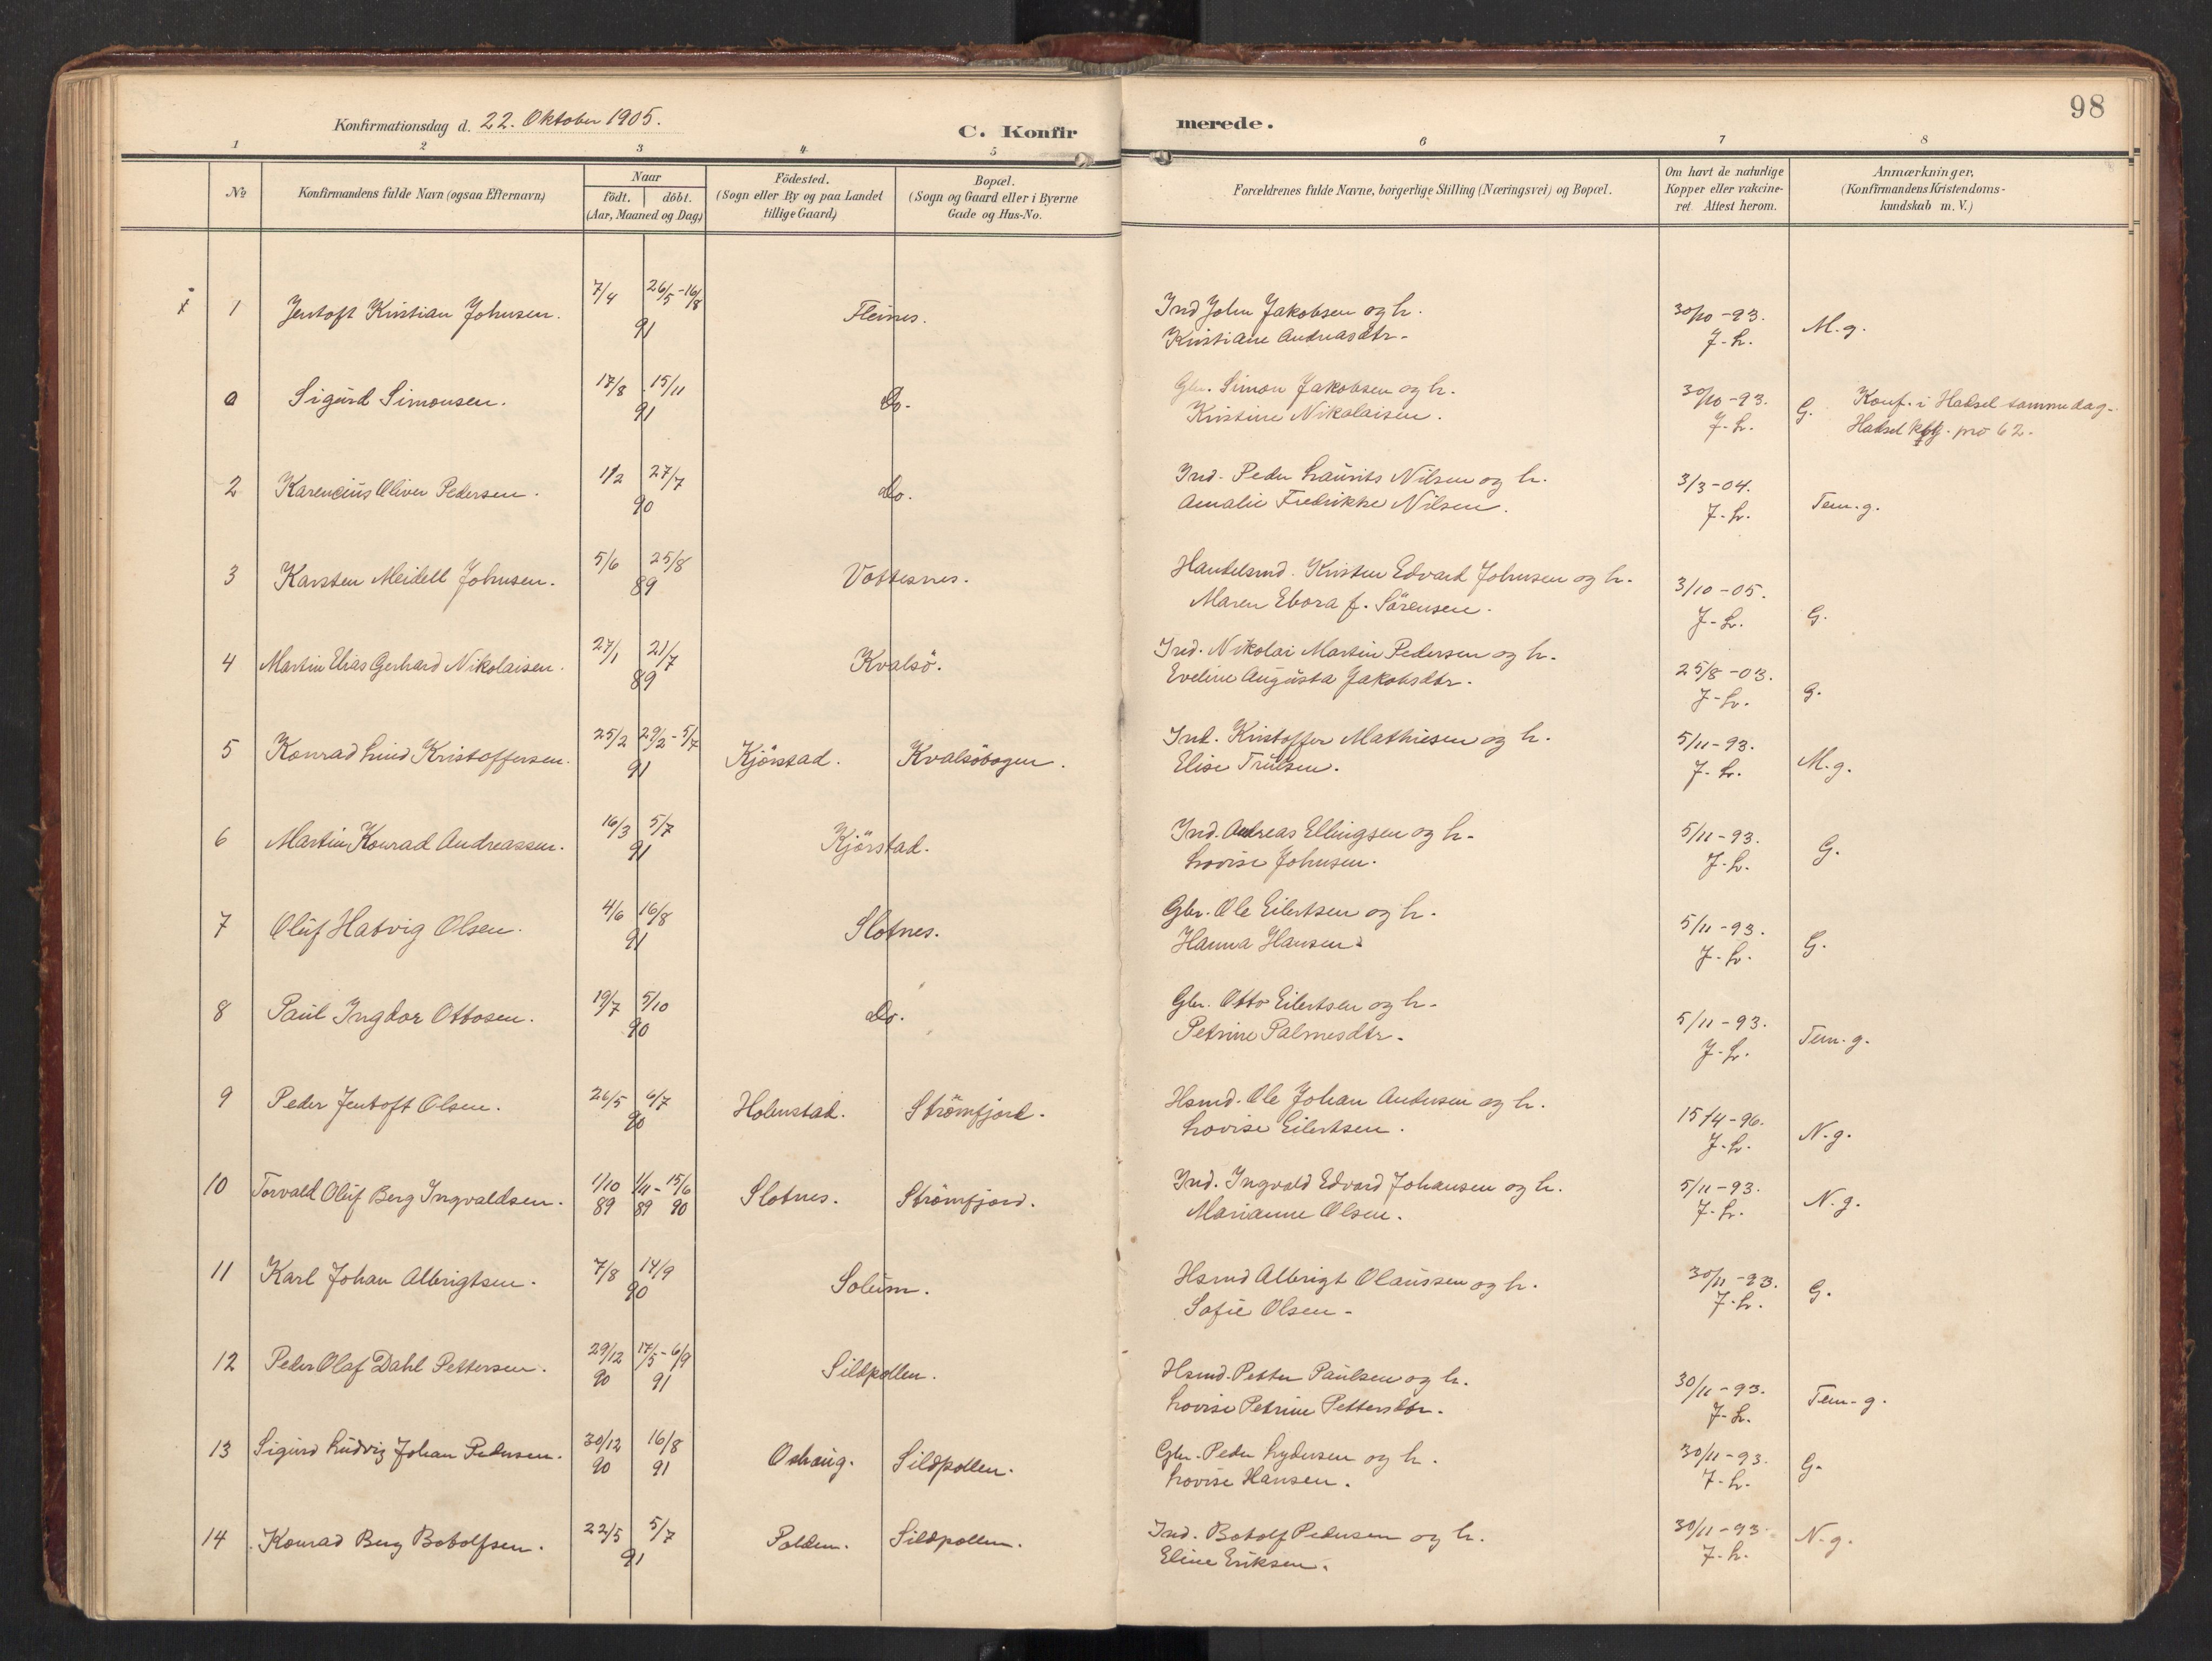 98
Konfirmationsdag d. 22. Oktober 1905.
C. Konfirmerede.
1 2 3 4 5 6 7 8
No
Konfirmandens fulde Navn (ogsaa Efternavn)
Naar
födt. döbt.
(Aar, Maaned og Dag)
Födested.
(Sogn eller By og paa Landet
tillige Gaard)
Bopæl.
(Sogn og Gaard eller i Byerne
Gade og Hus-No.
Forældrenes fulde Navne, borgerlige Stilling (Næringsvei) og Bopæl.
Om havt de naturlige
Kopper eller vakcine-
ret. Attest herom.
Anmærkninger,
(Konfirmandens Kristendoms-
kundskab m. V.)
1 Jentoft Kristian Johnsen. 7/4 26/5-16/8 91 Fleines. Ind John Jakobsen og h. 30/10-93.
Kristiane Andreasdtr. J-L. M.g.
0 Sigurd Simonsen. 17/8 15/11 91 Do. Gbr. Simon Jakobsen og h. 30/10-93. G. Konf. i Hadsel samme dag.
Kristine Nikolaisen. J-L. Hadsel kbg. pro 62.
2 Karencius Oliver Pedersen. 1/2 27/7 90 Do. Ind. Peder Laurits Nilsen og h. 3/3-04.
Amalie Fredrikke Nilsen. J-L. Tem.g.
3 Karsten Meidell Johnsen. 5/6 25/8 89 Vottesnes. Handelsmd. Kristen Edvard Johnsen og h. 3/10-05.
Maren Ebora f. Sörensen. J-L. G.
4 Martin Elias Gerhard Nikolaisen. 27/1 21/7 89 Kvalsö. Ind. Nikolai Martin Pedersen og h. 25/8-03.
Eveline Augusta Jakobsdtr. J-L. G.
5 Konrad Lind Kristoffersen. 25/2 29/2-5/7 91 Kjörstad. Kvalsöbogen. Ind. Kristoffer Mathiesen og h. 5/11-93.
Elise Trulsen. J-L. M.g.
6 Martin Konrad Andreassen. 16/3 5/7 91 Kjörstad. Ind. Andreas Ellingsen og h. 5/11-93.
Lovise Johnsen. J-L. G.
7 Oluf Hatvig Olsen. 4/6 16/8 91 Slotnes. Gbr. Ole Eilertsen og h. 5/11-93.
Hanna Hansen. J-L. G.
8 Paul Ingdor Ottosen. 19/7 5/10 90 Do. Gbr. Otto Eilertsen og h. 5/11-93.
Petrine Palmesdtr. J-L. Tem.g.
9 Peder Jentoft Olsen. 26/5 6/7 90 Holmstad. Strömfjord. Hsmd. Ole Johan Andersen og h. 15/4-96.
Lovise Eilertsen. J-L. N.g.
10 Torvald Oluf Berg Ingvaldsen. 1/10 89 1/11-15/6 89 90 Slotnes. Strömfjord. Ind. Ingvald Edvard Johansen og h. 5/11-93.
Marianne Olsen. J-L. N.g.
11 Karl Johan Albrigtsen. 7/8 14/9 90 Soleim. Hsmd Albrigt Olaussen og h. 30/11-93.
Sofie Olsen. J-L. G.
12 Peder Olaf Dahl Pettersen. 29/12 90 17/5-6/9 91 Sildpollen. Hsmd. Petter Paulsen og h. 30/11-93.
Lovise Petrine Pettersdtr. J-L. Tem-g.
13 Sigurd Ludvig Johan Pedersen. 30/12 90 16/8 91 Oshaug. Sildpollen. Gbr. Peder Lydersen og h. 30/11-93.
Lovise Hansen. J-L. G.
14 Konrad Berg Botolfsen. 22/5 5/7 91 Polden. Sildpollen. Ind. Botolf Pedersen og h. 30/11-93.
Eline Eriksen. J-L. N.g.